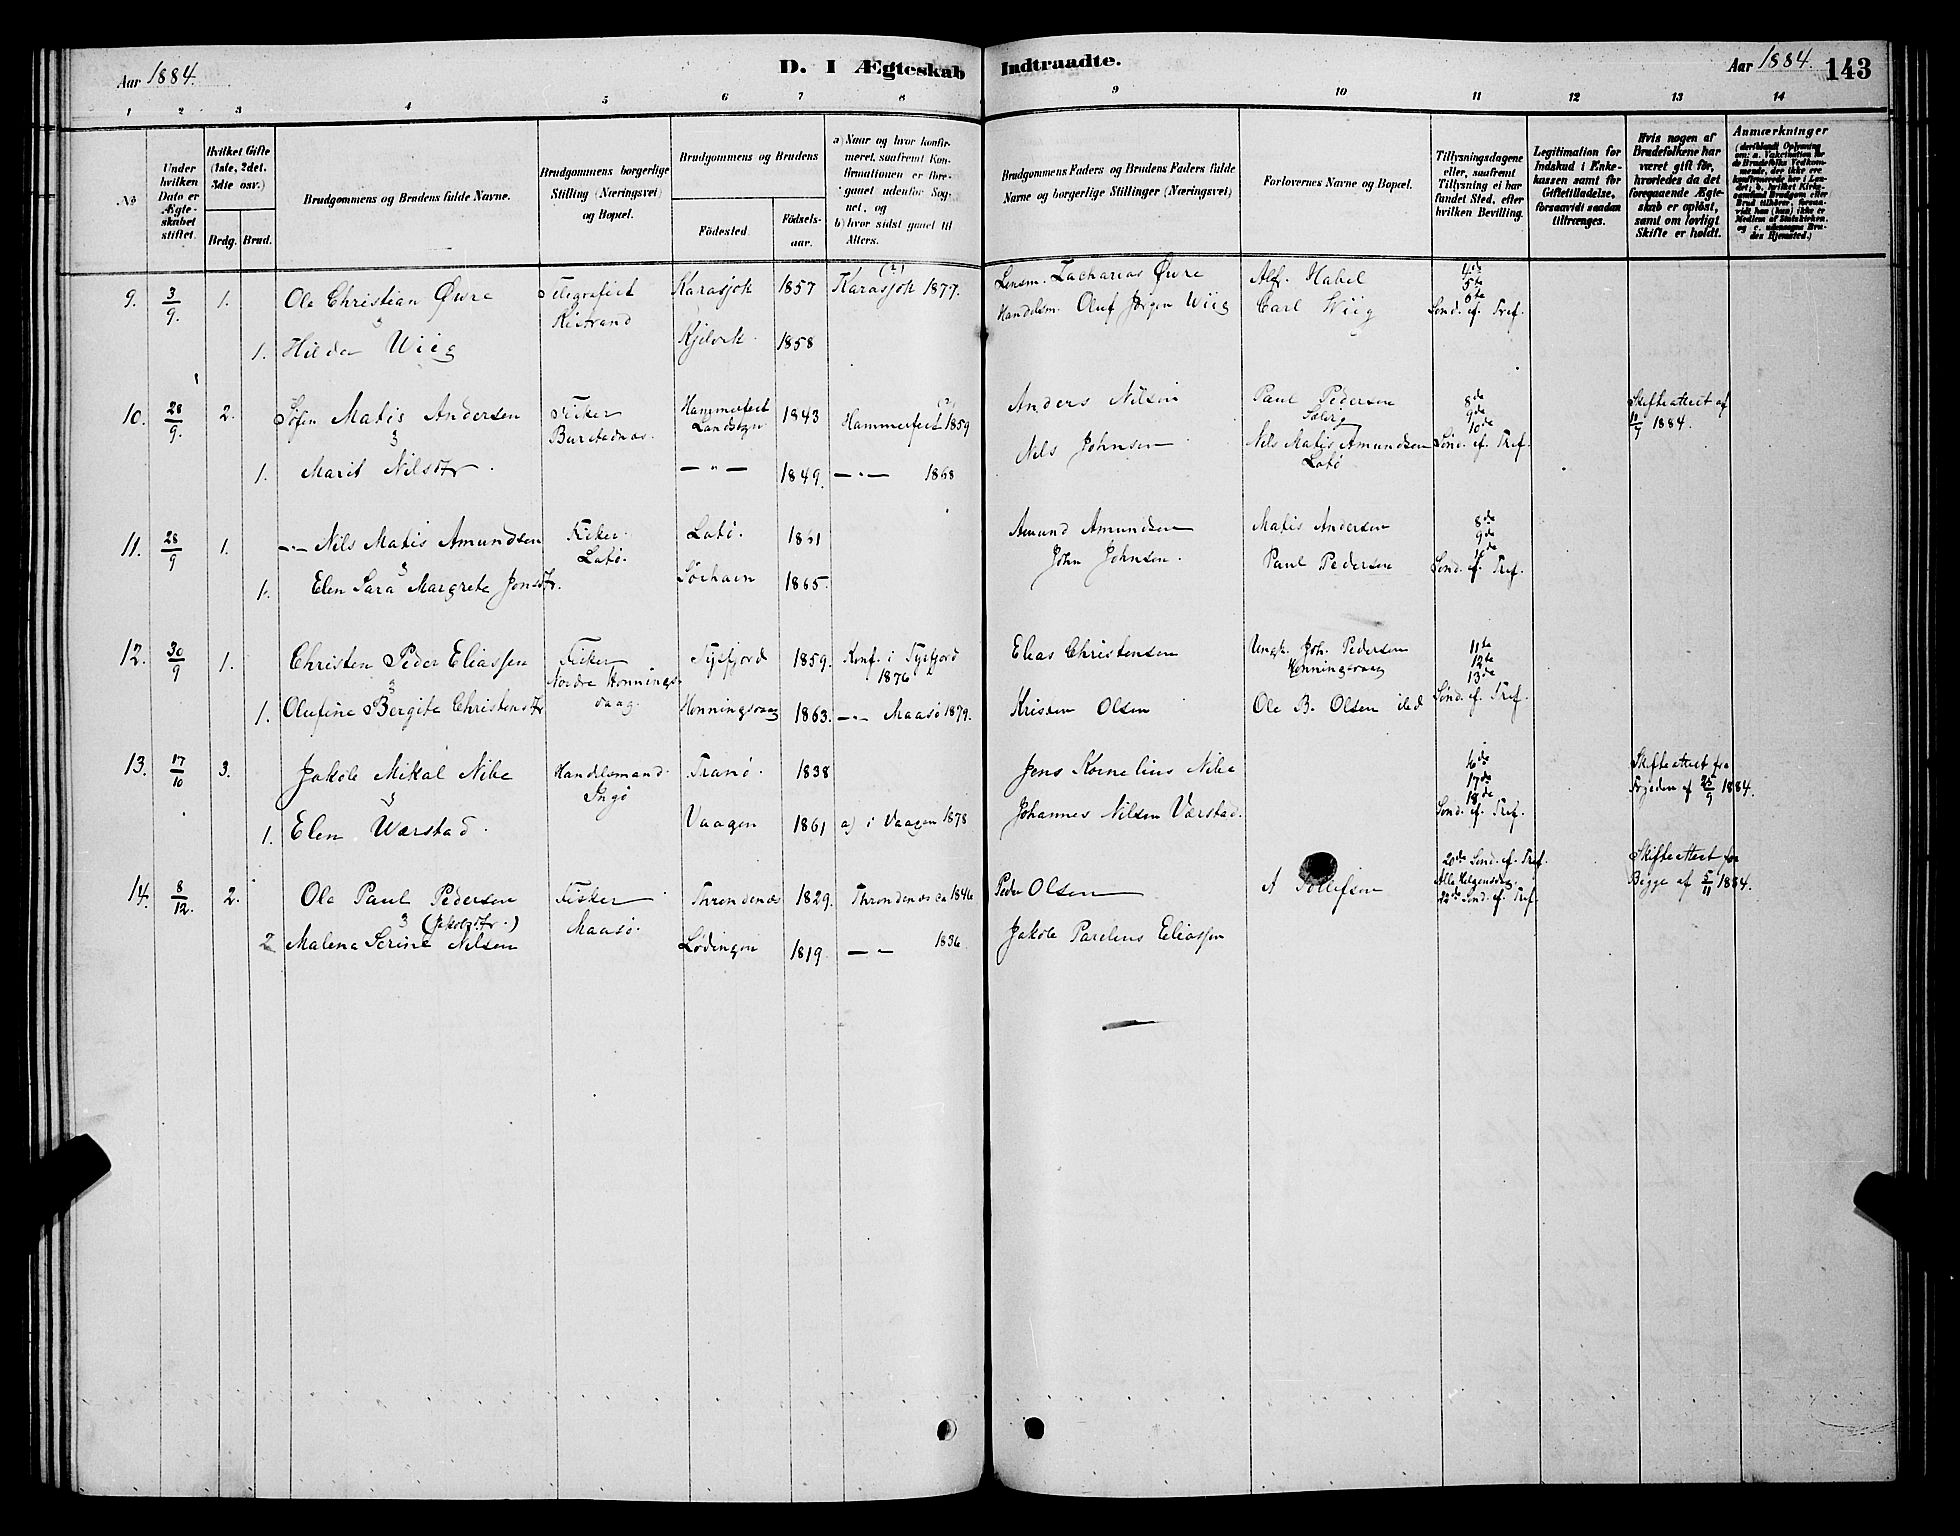 Aar 1884.
D. I Ægteskab Indtraadte.
Aar 1884. 143
1 2 3 4 5 6 7 8 9 10 11 12 13 14
No
Under hvilken Dato er Ægteskabet stiftet.
Hvilket Gifte (1ste, 2det, 3die osv.)
Brdg. Brud.
Brudgommens og Brudens fulde Navne.
Brudgommens borgerlige Stilling (Næringsvei) og Bopæl.
Brudgommens og Brudens
Födested. Födsels-aar.
a) Naar og hvor konfirmeret, saafremt Konfirmationen er foregaaet udenfor Sognet, og
b) hvor sidst gaaet til Alters.
Brudgommens Faders og Brudens Faders fulde Navne og borgerlige Stillinger (Næringsvei)
Forlovernes Navne og Bopæl.
Tillysningsdagene eller, saafremt Tillysning ei har fundet Sted, efter hvilken Bevilling.
Legitimation for Indskud i Enkekassen samt for Giftetilladelse, forsaavidt saadan tiltrænges.
Hvis nogen af Brudefolkene har været gift för, hvorledes da det foregaaende Ægteskab er oplöst, samt om lovligt Skifte er holdt.
Anmærkninger
9. 3/9. 1. Ole Christian Øvre Telegrafist Karasjok 1857 Karasjok 1877. Lensm. Zacharias Øvre Alf. Habel 4de 5te 6te
Kistrand Handelsm. Oluf Jørgen Wiig Carl Wiig Sönd. ef. Tref.
1. Hilda Wiig Kjelvik 1858
10. 28/9. 2. Matis Andersen Fisker Hammerfest Landsogn 1843 Hammerfest 1859 Anders Nilsen Paul Pedersen 8de 9de 10de Skifteattest af 1884.
Burstadnæs. Nils Johnsen Nils Matis Amundsen Latö Sönd. ef. Tref.
1. Marit Nilsdtr. — " — 1849. — " — 1868
11. 28/9 1. —"— Nils Matis Amundsen Fisker Latö. Latö. 1861 Amund Amundsen Matis Andersen 8de 9de
1. Elen Sara Margrete Jonsdtr. 1865. John Johnsen. Paul Pedersen Sönd. ef. Tref.
12. 30/9 1. Christen Peder Eliassen Fisker Tysfjord 1859. Konf. i Tysfjord 1876 Elias Christensen Ungk. Joh. Pedersen Honningsvaag 11te 12te 13de
Nordre Honningsvaag.
1. Olufine Bergite Christensdtr Honningsvaag 1863. —"— Maasö 1879. Kristen Olsen Ole B. Olsen ibid Sönd. ef. Tref.
13. 17/10 3. Jakob Mikal Nibe Handelsmand Ingö Tranö. 1838 Jens Kornelius Nibe 16de 17de 18de Skifteattest fra
1. Elen Værstad. Vaagen 1861 a) i Vaagen 1878 Johannes Nilsen Værstad. Sönd. ef. Tref. af 25/9 1884.
14. 8/12. 2. Ole Paul Pedersen Fisker Throndenæs 1829. Throndenæs ca 1846 Peder Olsen A Tollefsen 20de Sönd. ef. Tref. Alle Helgensdag. 22de Sönd. ef. Tref. Skifteattest for Begge af 5/11 1884.
(Jakobsdtr.) Maasö.
2 Malena Serine Nilsen Lødingen 1819 — " — 1836 Jakob Parelius Eliassen